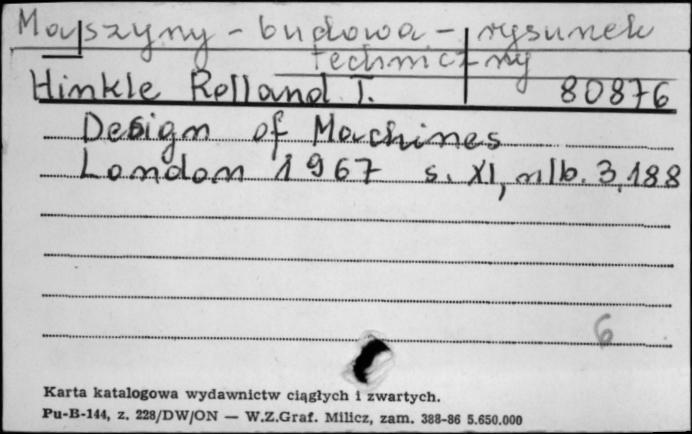 Maszyny - budowa - rysunek
techniczny
Hinkle Rolland T. 80876
Design of Machines
London 1967 s. XI, nlb. 3, 188
6
Karta katalogowa wydawnictw ciągłych i zwartych.
Pu-B-144, z. 228/DW/ON — W.Z.Graf. Milicz, zam. 388-86 5.650.000